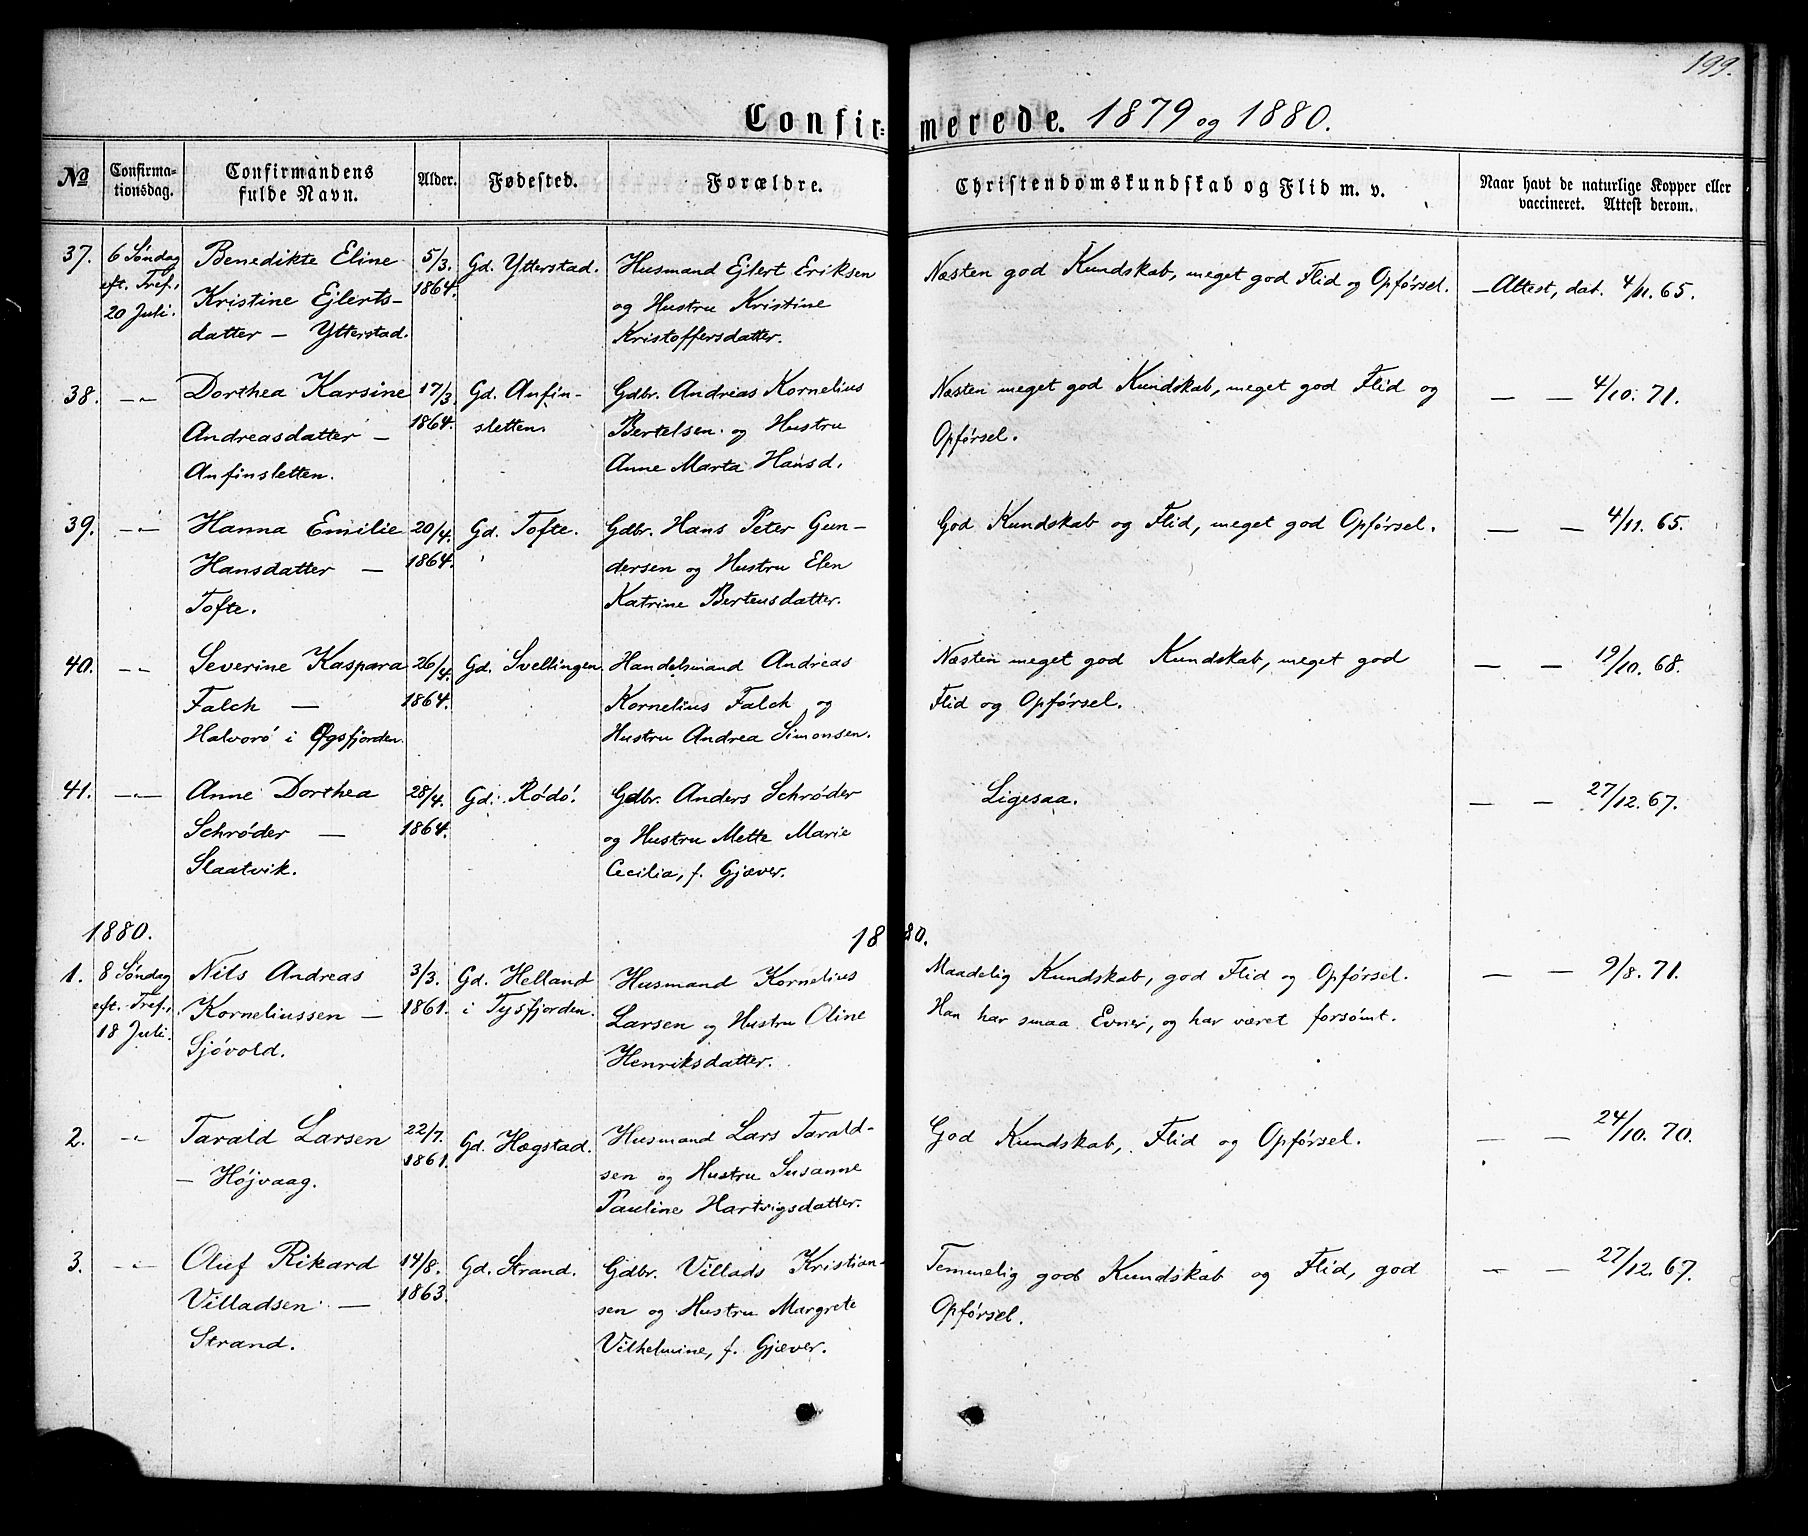 199.
Confirmerede. 1879 og 1880.
No
Confirmationsdag.
Confirmandens fulde Navn.
Alder.
Fødested.
Forældre.
Christendomskundskab og Flid m. v.
Naar havt de naturlige Kopper eller vaccineret. Attest derom.
37. 6 Søndag Benedikte Eline 5/3. Gd. Ytterstad. Husmand Ejlert Eriksen Næsten god Kundskab, meget god Flid og Opførsel. — Attest, dat. 4/11. 65.
eft. Tref., Kristine Ejlerts- 1864. og Hustru Kristine
20 Juli. datter — Ytterstad. Kristoffersdatter.
38. —„— Dorthea Karsine 17/3 Gd. Anfin- Gdbr. Andreas Kornelius Næsten meget god Kundskab, meget god Flid og — — 4/10. 71.
Andreasdatter — 1864. sletten. Bertelsen og Hustru Opførsel.
Anfinsletten. Anne Marta Hansd.
39. —„— Hanna Emilie 20/4. Gd. Tofte. Gdbr. Hans Peter Gun- God Kundskab og Flid, meget god Opførsel. — — 4/11. 65.
Hansdatter — 1864. dersen og Hustru Elen
Tofte. Katrine Berteusdatter.
40. —„— Severine Kaspara 26/4. Gd. Svellingen. Handelsmand Andreas Næsten meget god Kundskab, meget god — — 19/10. 68.
Falch — 1864. Kornelius Falch og Flid og Opførsel.
Halvorø i Øgsfjorden. Hustru Andrea Simonsen.
41. —„— Anne Dorthea 28/4. Gd. Rødø. Gdbr. Anders Schrøder Ligesaa. — — 27/12. 67.
Schrøder — 1864. og Hustru Mette Marie
Slaatvik. Cecilia, f. Gjæver.
1880. 1880.
1. 8 Søndag Nils Andreas 3/3. Gd. Helland Husmand Kornelius Maadelig Kundskab, god Flid og Opførsel. — — 9/8. 71.
eft. Tref., Korneliussen — 1861. i Tysfjorden. Larsen og Hustru Oline Han har smaa Evner, og har været forsømt.
18 Juli. Sjøvold. Henriksdatter.
2. —„— Tarald Larsen 22/7. Gd. Hægstad. Husmand Lars Tarald- God Kundskab, Flid og Opførsel. — — 24/10. 70.
— Højvaag. 1861. sen og Hustru Susanne
Pauline Hartvigsdatter.
3. —„— Oluf Rikard 14/8. Gd. Strand. Gdbr. Villads Kristian- Temmelig god Kundskab og Flid, god — — 27/12. 67.
Villadsen — 1863. sen og Hustru Margrete Opførsel.
Strand. Vilhelmine, f. Gjæver.